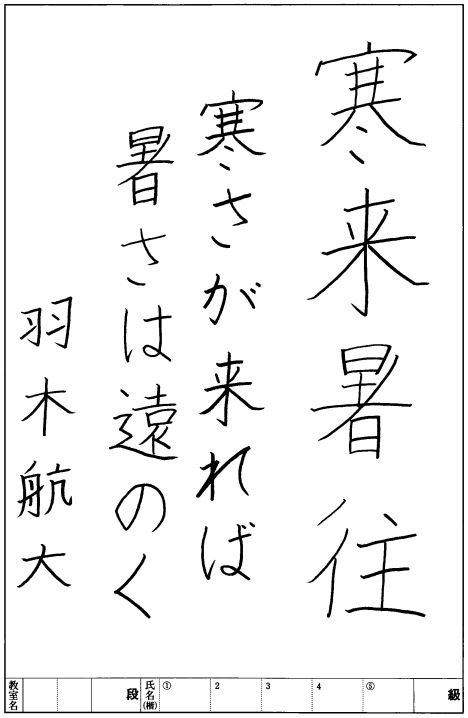 寒来暑往
寒さが来れば
暑さは遠のく
羽木航大
級
⑤
4
3
2
①
氏名(楷)
段
教室名